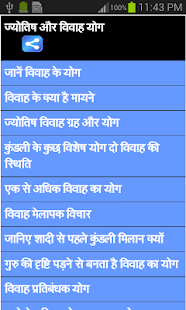 100% 11:43 PM
ज्योतिष और विवाह योग
जानें विवाह के योग
विवाह के क्या है मायने
ज्योतिष विवाह ग्रह और योग
कुंडली के कुछ विशेष योग दो विवाह की
स्थिति
एक से अधिक विवाह का योग
विवाह मेलापक विचार
जानिए शादी से पहले कुंडली मिलान क्यों
गुरु की दृष्टि पड़ने से बनता है विवाह का योग
विवाह प्रतिबंधक योग